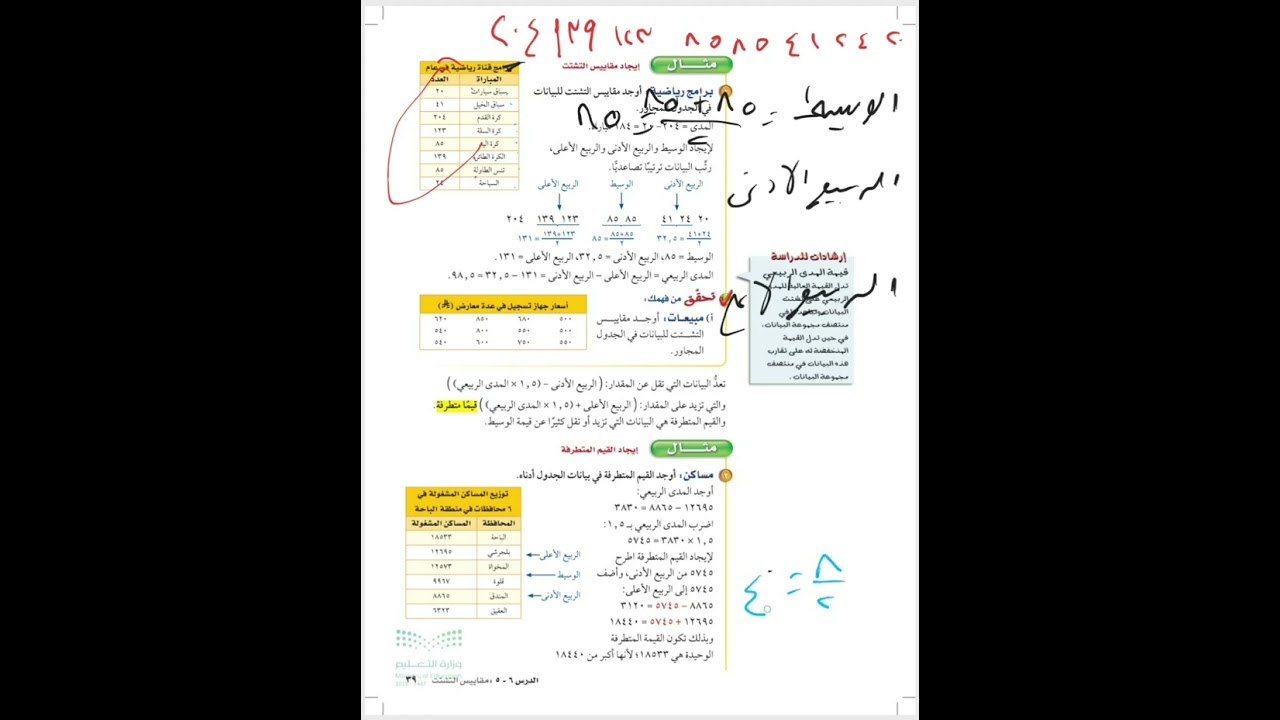 ٢٠ ٢٤ ٤١ ٨٥ ٨٥ ١٢٣ ١٣٩ ٢٠٤
مثـــال
إيجاد مقاييس التشتت
برامج رياضية: أوجد مقاييس التشتت للبيانات
في الجدول المجاور.
المدى = ٢٠٤ - ٢٠ = ١٨٤
لإيجاد الوسيط والربيع الأدنى والربيع الأعلى،
رتّب البيانات ترتيبًا تصاعديًّا.
برامج قناة رياضية في عام
المباراة العدد
سباق سيارات ٢٠
سباق الخيل ٤١
كرة القدم ٢٠٤
كرة السلة ١٢٣
كرة اليد ٨٥
الكرة الطائرة ١٣٩
تنس الطاولة ٨٥
السباحة ٢٤
الوسيط = ٨٥+٨٥ = ٨٥
٢
الربيع الأدنى
الربيع الأعلى
الربيع الأدنى الوسيط الربيع الأعلى
٢٠ ٢٤ ٤١ ٨٥ ٨٥ ١٢٣ ١٣٩ ٢٠٤
٢٤+٤١/٢ = ٣٢,٥ ٨٥+٨٥/٢ = ٨٥ ١٢٣+١٣٩/٢ = ١٣١
الوسيط = ٨٥، الربيع الأدنى = ٣٢,٥، الربيع الأعلى = ١٣١.
المدى الربيعي = الربيع الأعلى - الربيع الأدنى = ١٣١ - ٣٢,٥ = ٩٨,٥.
إرشادات للدراسة
قيمة المدى الربيعي
تدل القيمة العالية للمدى
الربيعي على تشتت
البيانات وتباعدها في
منتصف مجموعة البيانات،
في حين تدل القيمة
المنخفضة له على تقارب
هذه البيانات في منتصف
مجموعة البيانات.
تحقق من فهمك:
أ) مبيعات: أوجـد مقاييـس
التشـتت للبيانات في الجدول
المجاور.
أسعار جهاز تسجيل في عدة معارض
٥٠٠ ٦٨٠ ٨٥٠ ٦٢٠
٥٠٠ ٥٥٠ ٨٠٠ ٥٤٠
٥٥٠ ٧٥٠ ٦٠٠ ٥٤٠
تعدُّ البيانات التي تقل عن المقدار: (الربيع الأدنى - (١,٥ × المدى الربيعي))
والتي تزيد على المقدار: (الربيع الأعلى + (١,٥ × المدى الربيعي)) قيمًا متطرفة.
والقيم المتطرفة هي البيانات التي تزيد أو تقل كثيرًا عن قيمة الوسيط.
مثـــال
إيجاد القيم المتطرفة
٢ مساكن: أوجد القيم المتطرفة في بيانات الجدول أدناه.
أوجد المدى الربيعي:
١٢٦٩٥ - ٨٨٦٥ = ٣٨٣٠
اضرب المدى الربيعي بـ ١,٥:
١,٥ × ٣٨٣٠ = ٥٧٤٥
لإيجاد القيم المتطرفة اطرح
٥٧٤٥ من الربيع الأدنى، وأضف
٥٧٤٥ إلى الربيع الأعلى:
٨٨٦٥ - ٥٧٤٥ = ٣١٢٠
١٢٦٩٥ + ٥٧٤٥ = ١٨٤٤٠
وبذلك تكون القيمة المتطرفة
الوحيدة هي ١٨٥٣٣؛ لأنها أكبر من ١٨٤٤٠
توزيع المساكن المشغولة في
٦ محافظات في منطقة الباحة
المحافظة المساكن المشغولة
الباحة ١٨٥٣٣
بلجرشي ١٢٦٩٥
المخواة ١٢٥٧٣
قلوة ٩٩٦٧
المندق ٨٨٦٥
العقيق ٦٣٢٣
الربيع الأعلى
الوسيط
الربيع الأدنى
٨/٢ = ٤
وزارة التعـليم
Ministry of Education
الدرس ٦ - ٥: مقاييس التشتت ٣٩